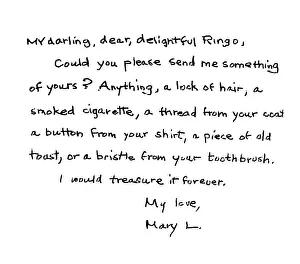 My darling, dear, delightful Ringo,
Could you please send me something
of yours? Anything, a lock of hair, a
smoked cigarette, a thread from your coat
a button from your shirt, a piece of old
toast, or a bristle from your toothbrush.
I would treasure it forever.
My love,
Mary L.